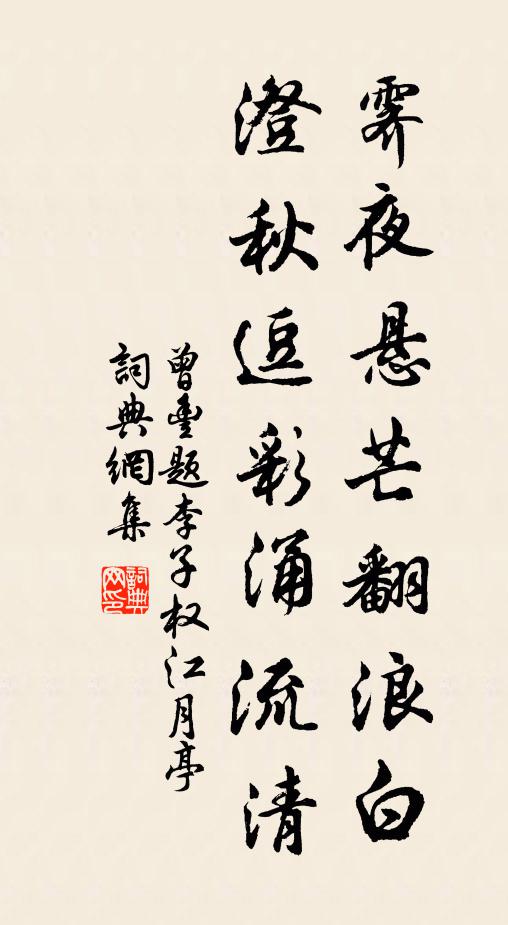 霁夜悬芒翻浪白
澄秋逗彩涌流清
曾豐題李子权江月亭
詞典網集
詞典网印